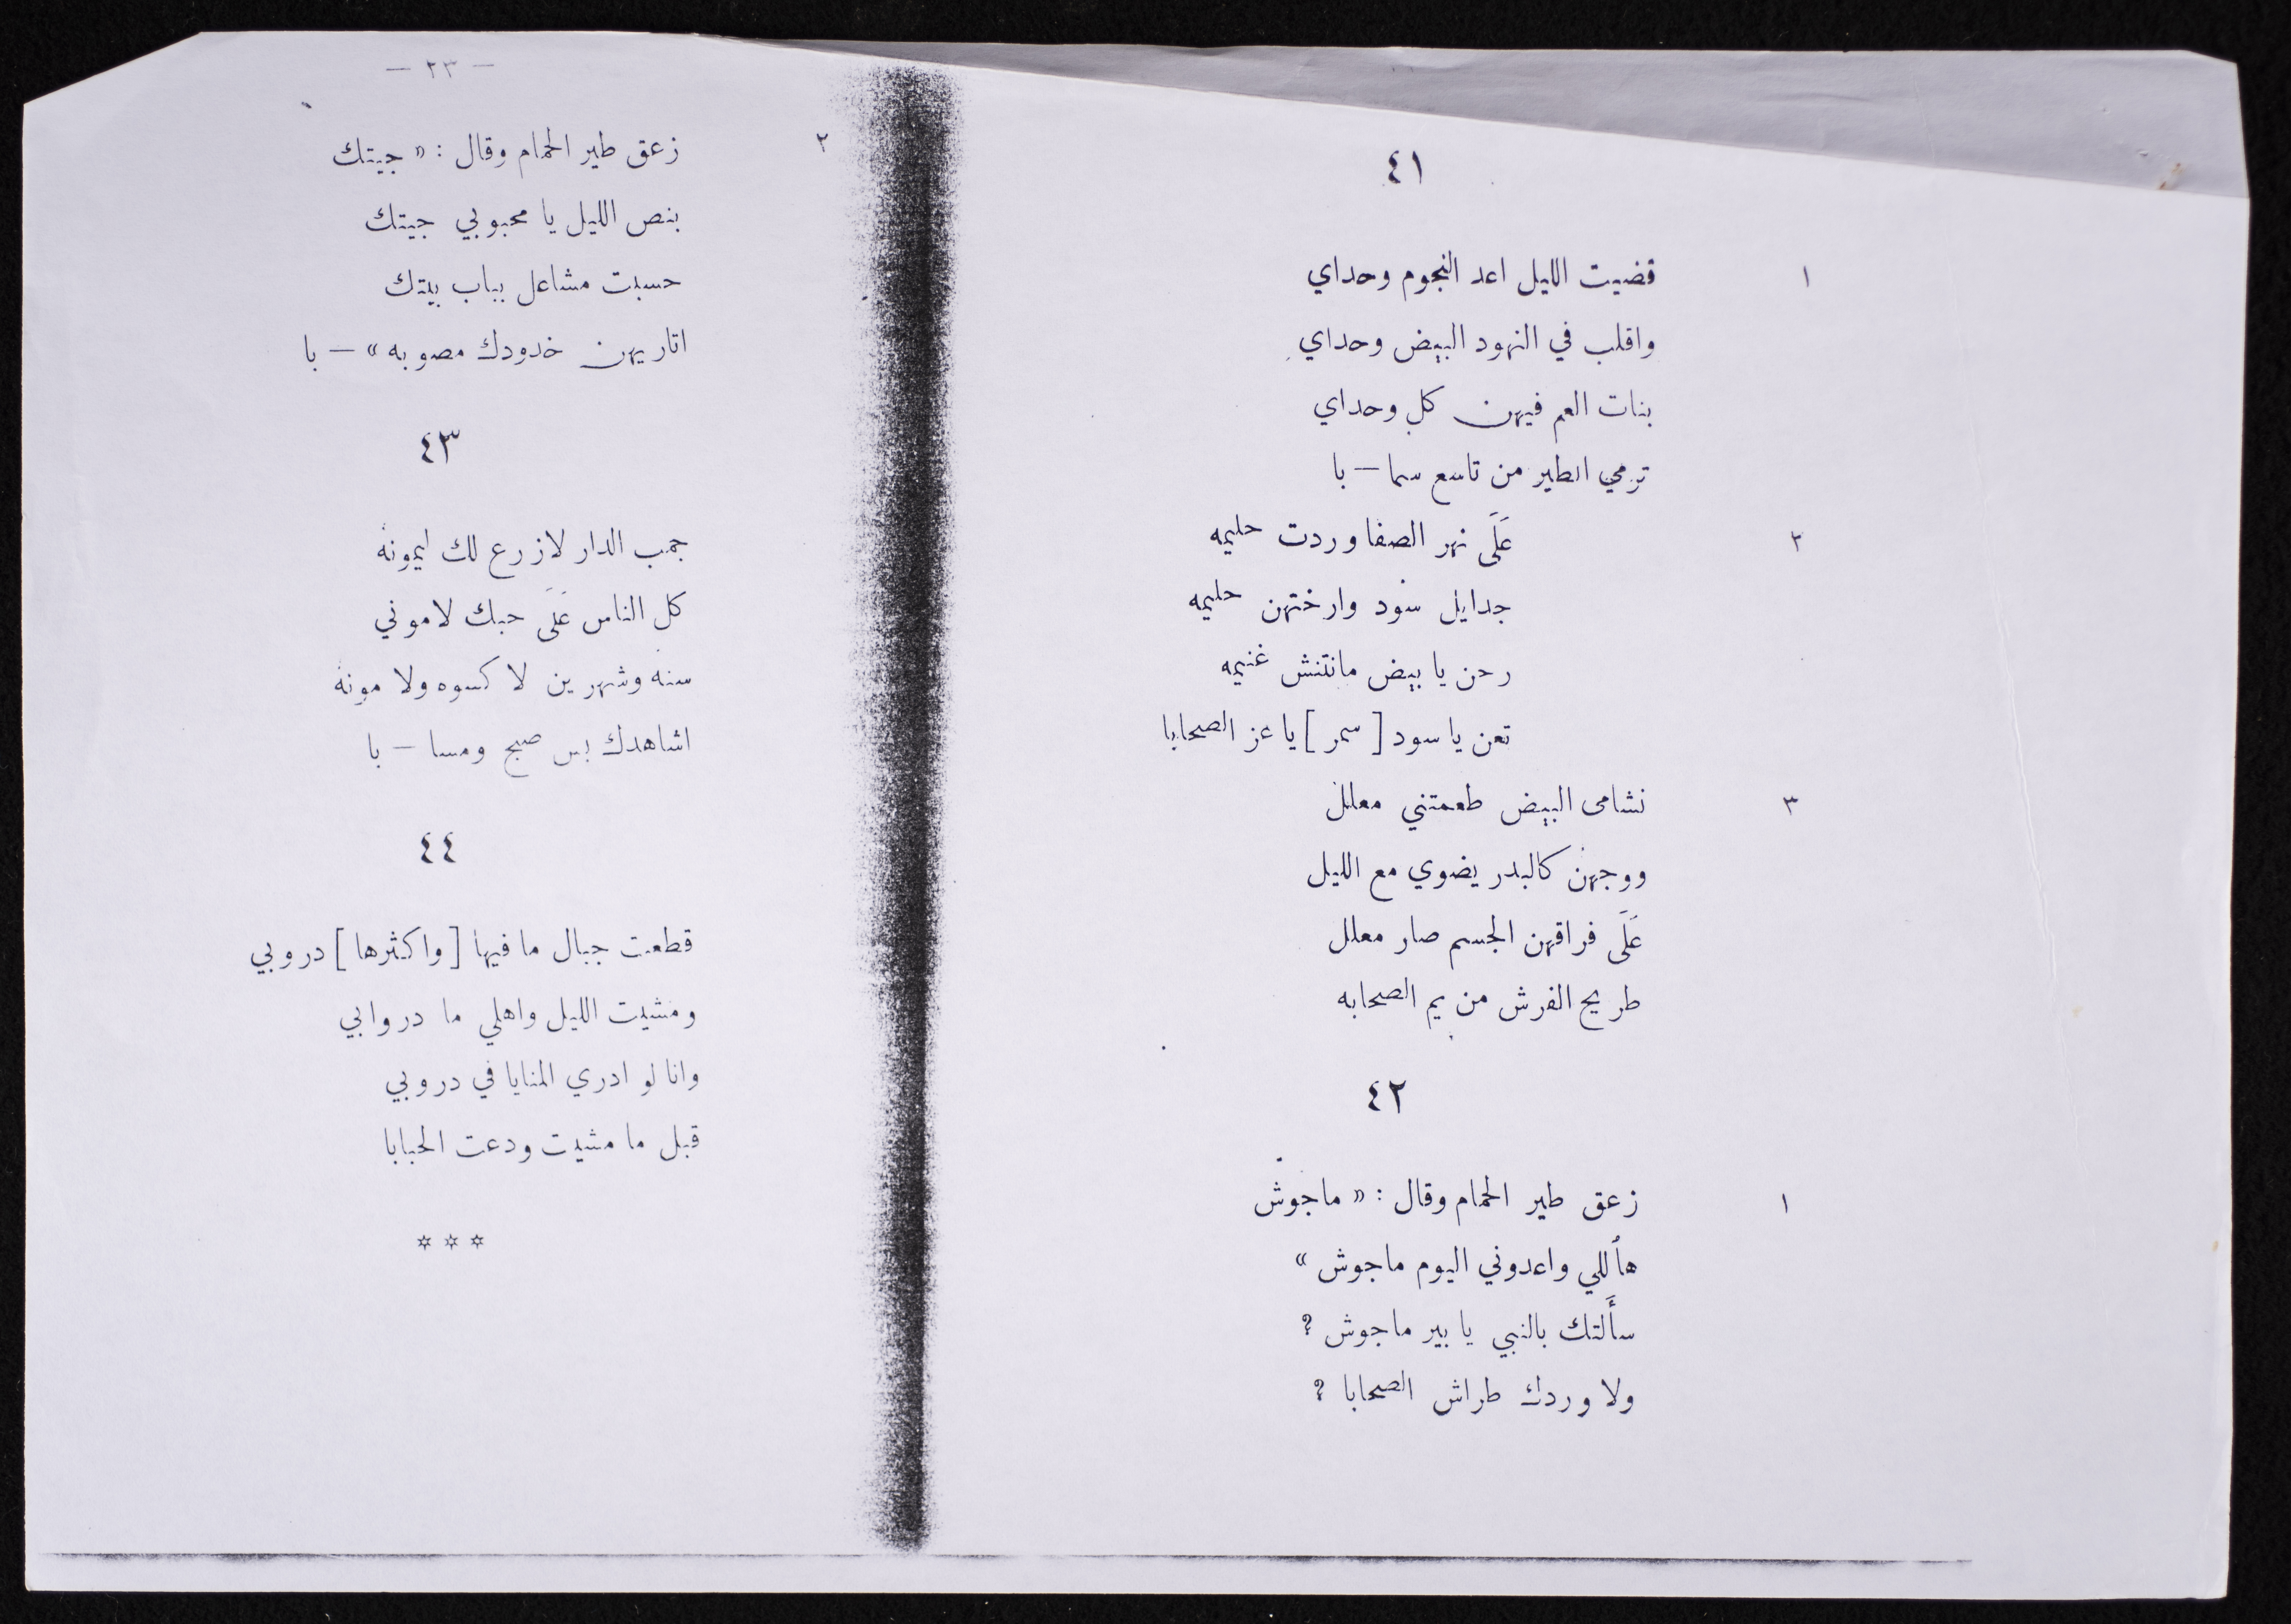 ٤١
١
قضيت الليل اعد النجوم وحداي
واقلب في النهود البيض وحداي
بنات العم فيهن كل وحداي
ترمي الطير من تاسع سما — با
٢
عَلَى نهر الصفا وردت حليمه
جدايل سود وارختهن حليمه
رحن يا بيض مانتنش غنيمه
تعن يا سود [ سمر ] يا عز الصحابا
٣
نشامى البيض طعمتني معلل
ووجهن كالبدر يضوي مع الليل
عَلَى فراقهن الجسم صار معلل
طريح الفرش من يم الصحابه
٤٢
١
زعق طير الحمام وقال : « ماجوش
هاللي واعدوني اليوم ماجوش »
سأَلتك بالنبي يا بير ماجوش ؟
ولا وردك طراش الصحابا ؟
— ٢٣ —
٢
زعق طير الحمام وقال : « جيتك
بنص الليل يا محبوبي جيتك
حسبت مشاعل بباب بيتك
اتاريهن خدودك مصوبه » — با
٤٣
جمب الدار لازرع لك ليمونه
كل الناس عَلَى حبك لاموني
سنه وشهرين لا كسوه ولا مونه
اشاهدك بس صبح ومسا — با
٤٤
قطعت جبال ما فيها [ واكثرها ] دروبي
ومشيت الليل واهلي ما دروا بي
وانا لو ادري المنايا في دروبي
قبل ما مشيت ودعت الحبابا
✡ ✡ ✡